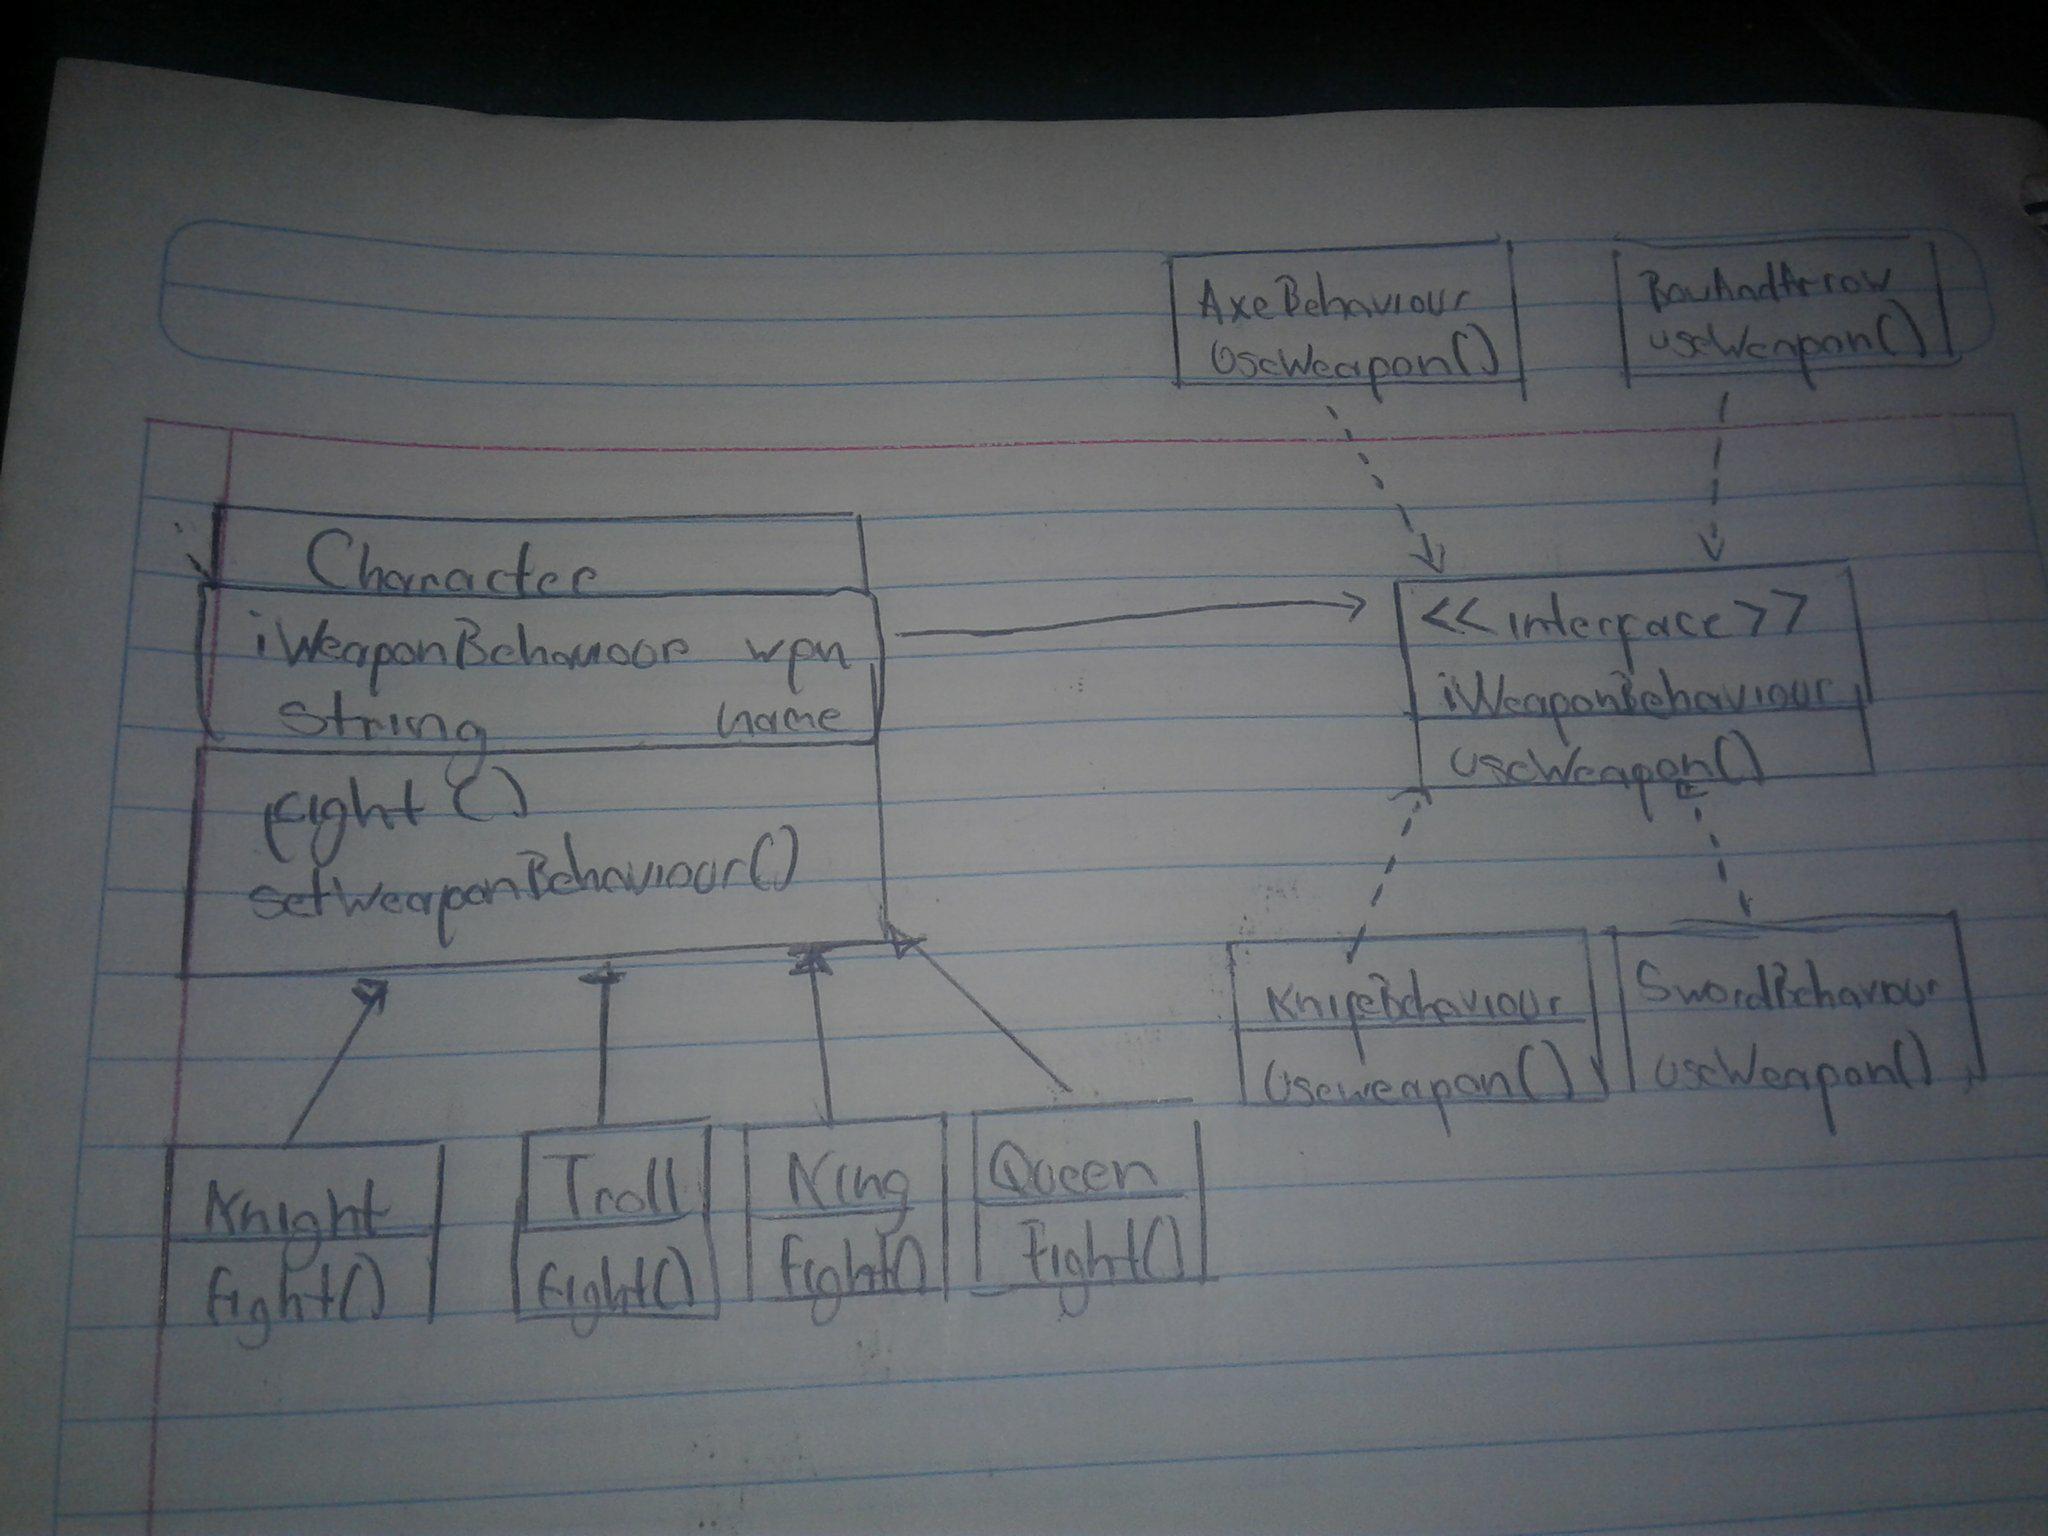 AxeBehaviour
UseWeapon()
BowAndArrow
useWeapon()
Character
iWeaponBehaviour wpn
String name
fight()
setWeaponBehaviour()
<<interface>>
iWeaponBehaviour
useWeapon()
KnifeBehaviour
Useweapon()
SwordBehaviour
useWeapon()
Knight
fight()
Troll
fight()
King
fight()
Queen
Fight()